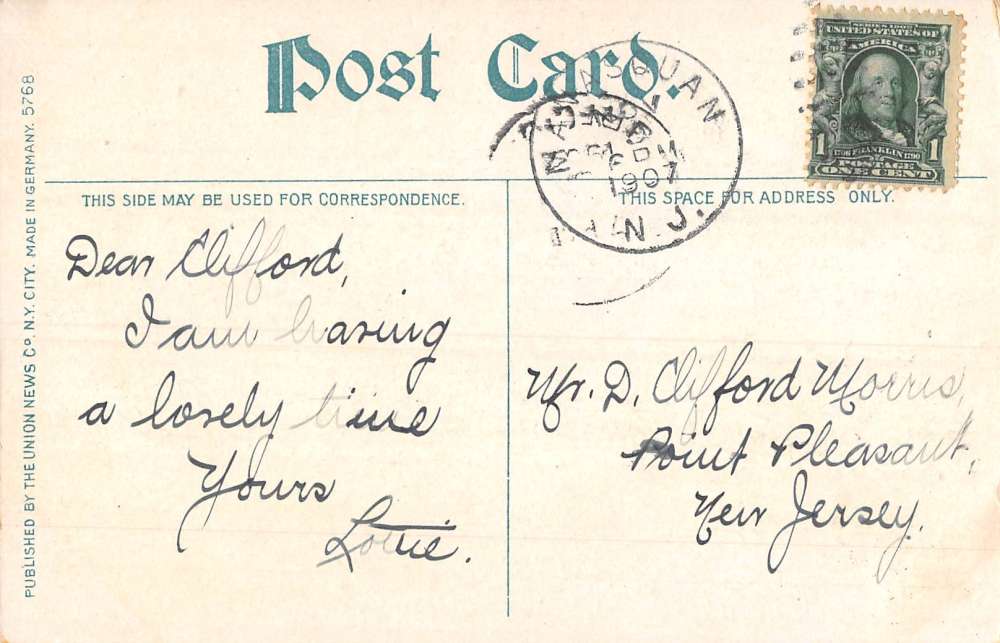 Post Card.
SERIES 1902
UNITED STATES OF
AMERICA
FRANKLIN
POSTAGE
1 1
ONE CENT
MANASQUAN
1907
N.J.
THIS SIDE MAY BE USED FOR CORRESPONDENCE.
THIS SPACE FOR ADDRESS ONLY.
Dear Clifford,
I am having
a lovely time
Yours
Lottie.
Mr. D. Clifford Morris,
Point Pleasant,
New Jersey.
PUBLISHED BY THE UNION NEWS Co. N.Y. CITY. MADE IN GERMANY. 5768